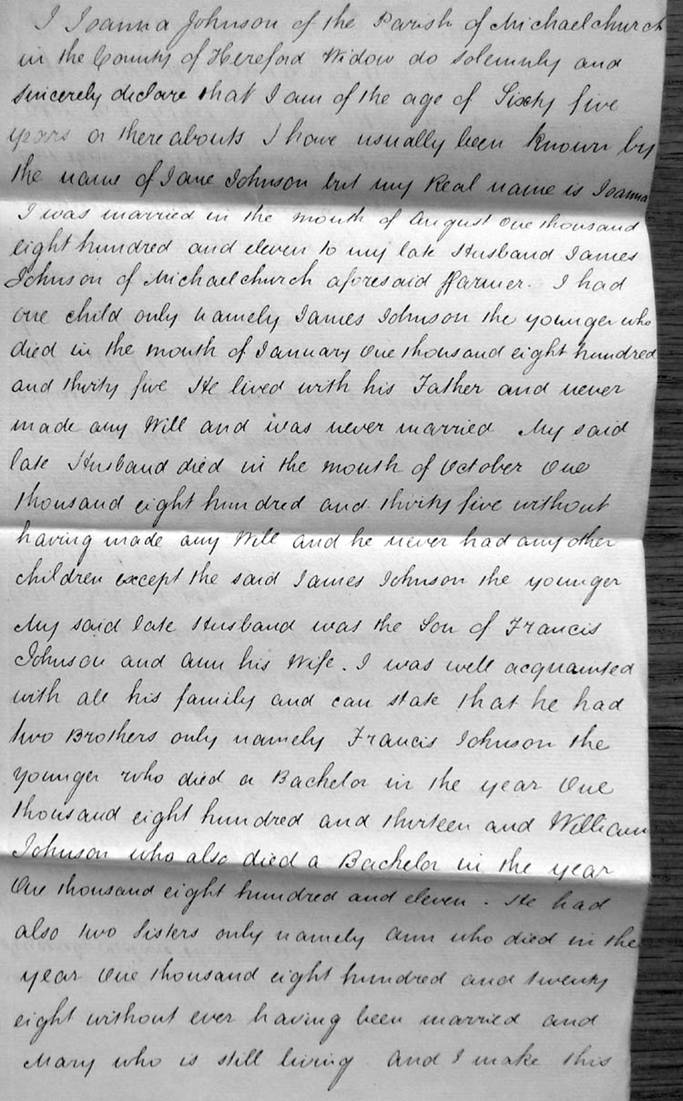 I Joanna Johnson of the Parish of Michaelchurch
in the County of Hereford Widow do solemnly and
sincerely declare that I am of the age of Sixty five
years or thereabouts I have usually been known by
the name of Jane Johnson but my Real name is Joanna
I was married in the month of August One thousand
eight hundred and eleven to my late Husband James
Johnson of Michaelchurch aforesaid Farmer. I had
one child only namely James Johnson the younger who
died in the month of January One thousand eight hundred
and thirty five He lived with his Father and never
made any Will and was never married My said
late Husband died in the month of October One
thousand eight hundred and thirty five without
having made any Will and he never had any other
children except the said James Johnson the younger
My said late Husband was the Son of Francis
Johnson and Ann his Wife. I was well acquainted
with all his family and can state that he had
two Brothers only namely Francis Johnson the
younger who died a Bachelor in the year One
thousand eight hundred and thirteen and William
Johnson who also died a Bachelor in the year
One thousand eight hundred and eleven. He had
also two Sisters only namely Ann who died in the
year One thousand eight hundred and twenty
eight without ever having been married and
Mary who is still living And I make this